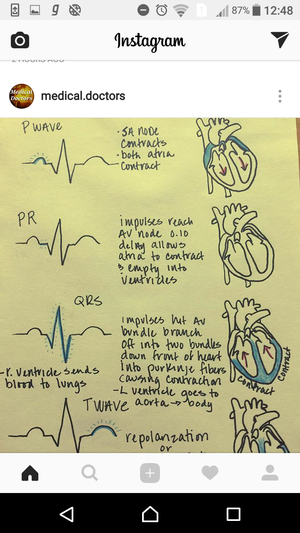 87% 12:48
Instagram
2 HOURS AGO
Medical Doctors
medical.doctors
P WAVE
· SA NODE
contracts
· both atria
contract
PR
impulses reach
AV node 0.10
delay allows
atria to contract
& empty into
ventricles
QRS
impulses hit AV
bundle branch
off into two bundles
down front of heart
into purkinje fibers
causing contraction
- r. ventricle sends
blood to lungs
- L ventricle goes to
aorta → body
contract
contract
T WAVE
repolarization
or